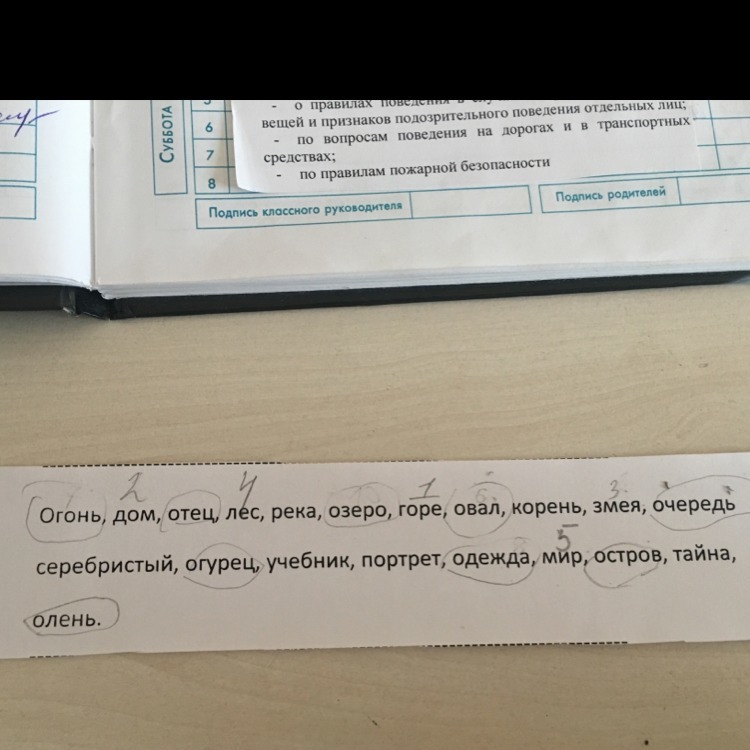 СУББОТА
6
7
8
- о правилах поведения в
вещей и признаков подозрительного поведения отдельных лиц;
- по вопросам поведения на дорогах и в транспортных
средствах;
- по правилам пожарной безопасности
Подпись классного руководителя
Подпись родителей
2 4 1 3
Огонь, дом, отец, лес, река, озеро, горе, овал, корень, змея, очередь
5
серебристый, огурец, учебник, портрет, одежда, мир, остров, тайна,
олень.